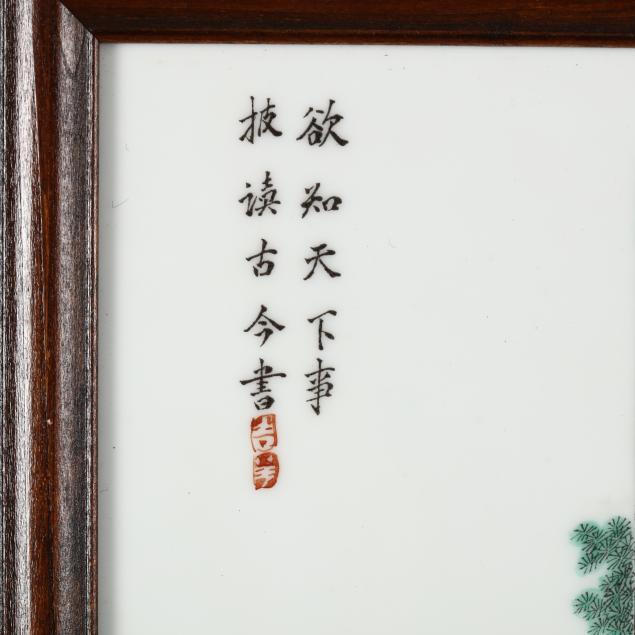 欲知天下事
披读古今书